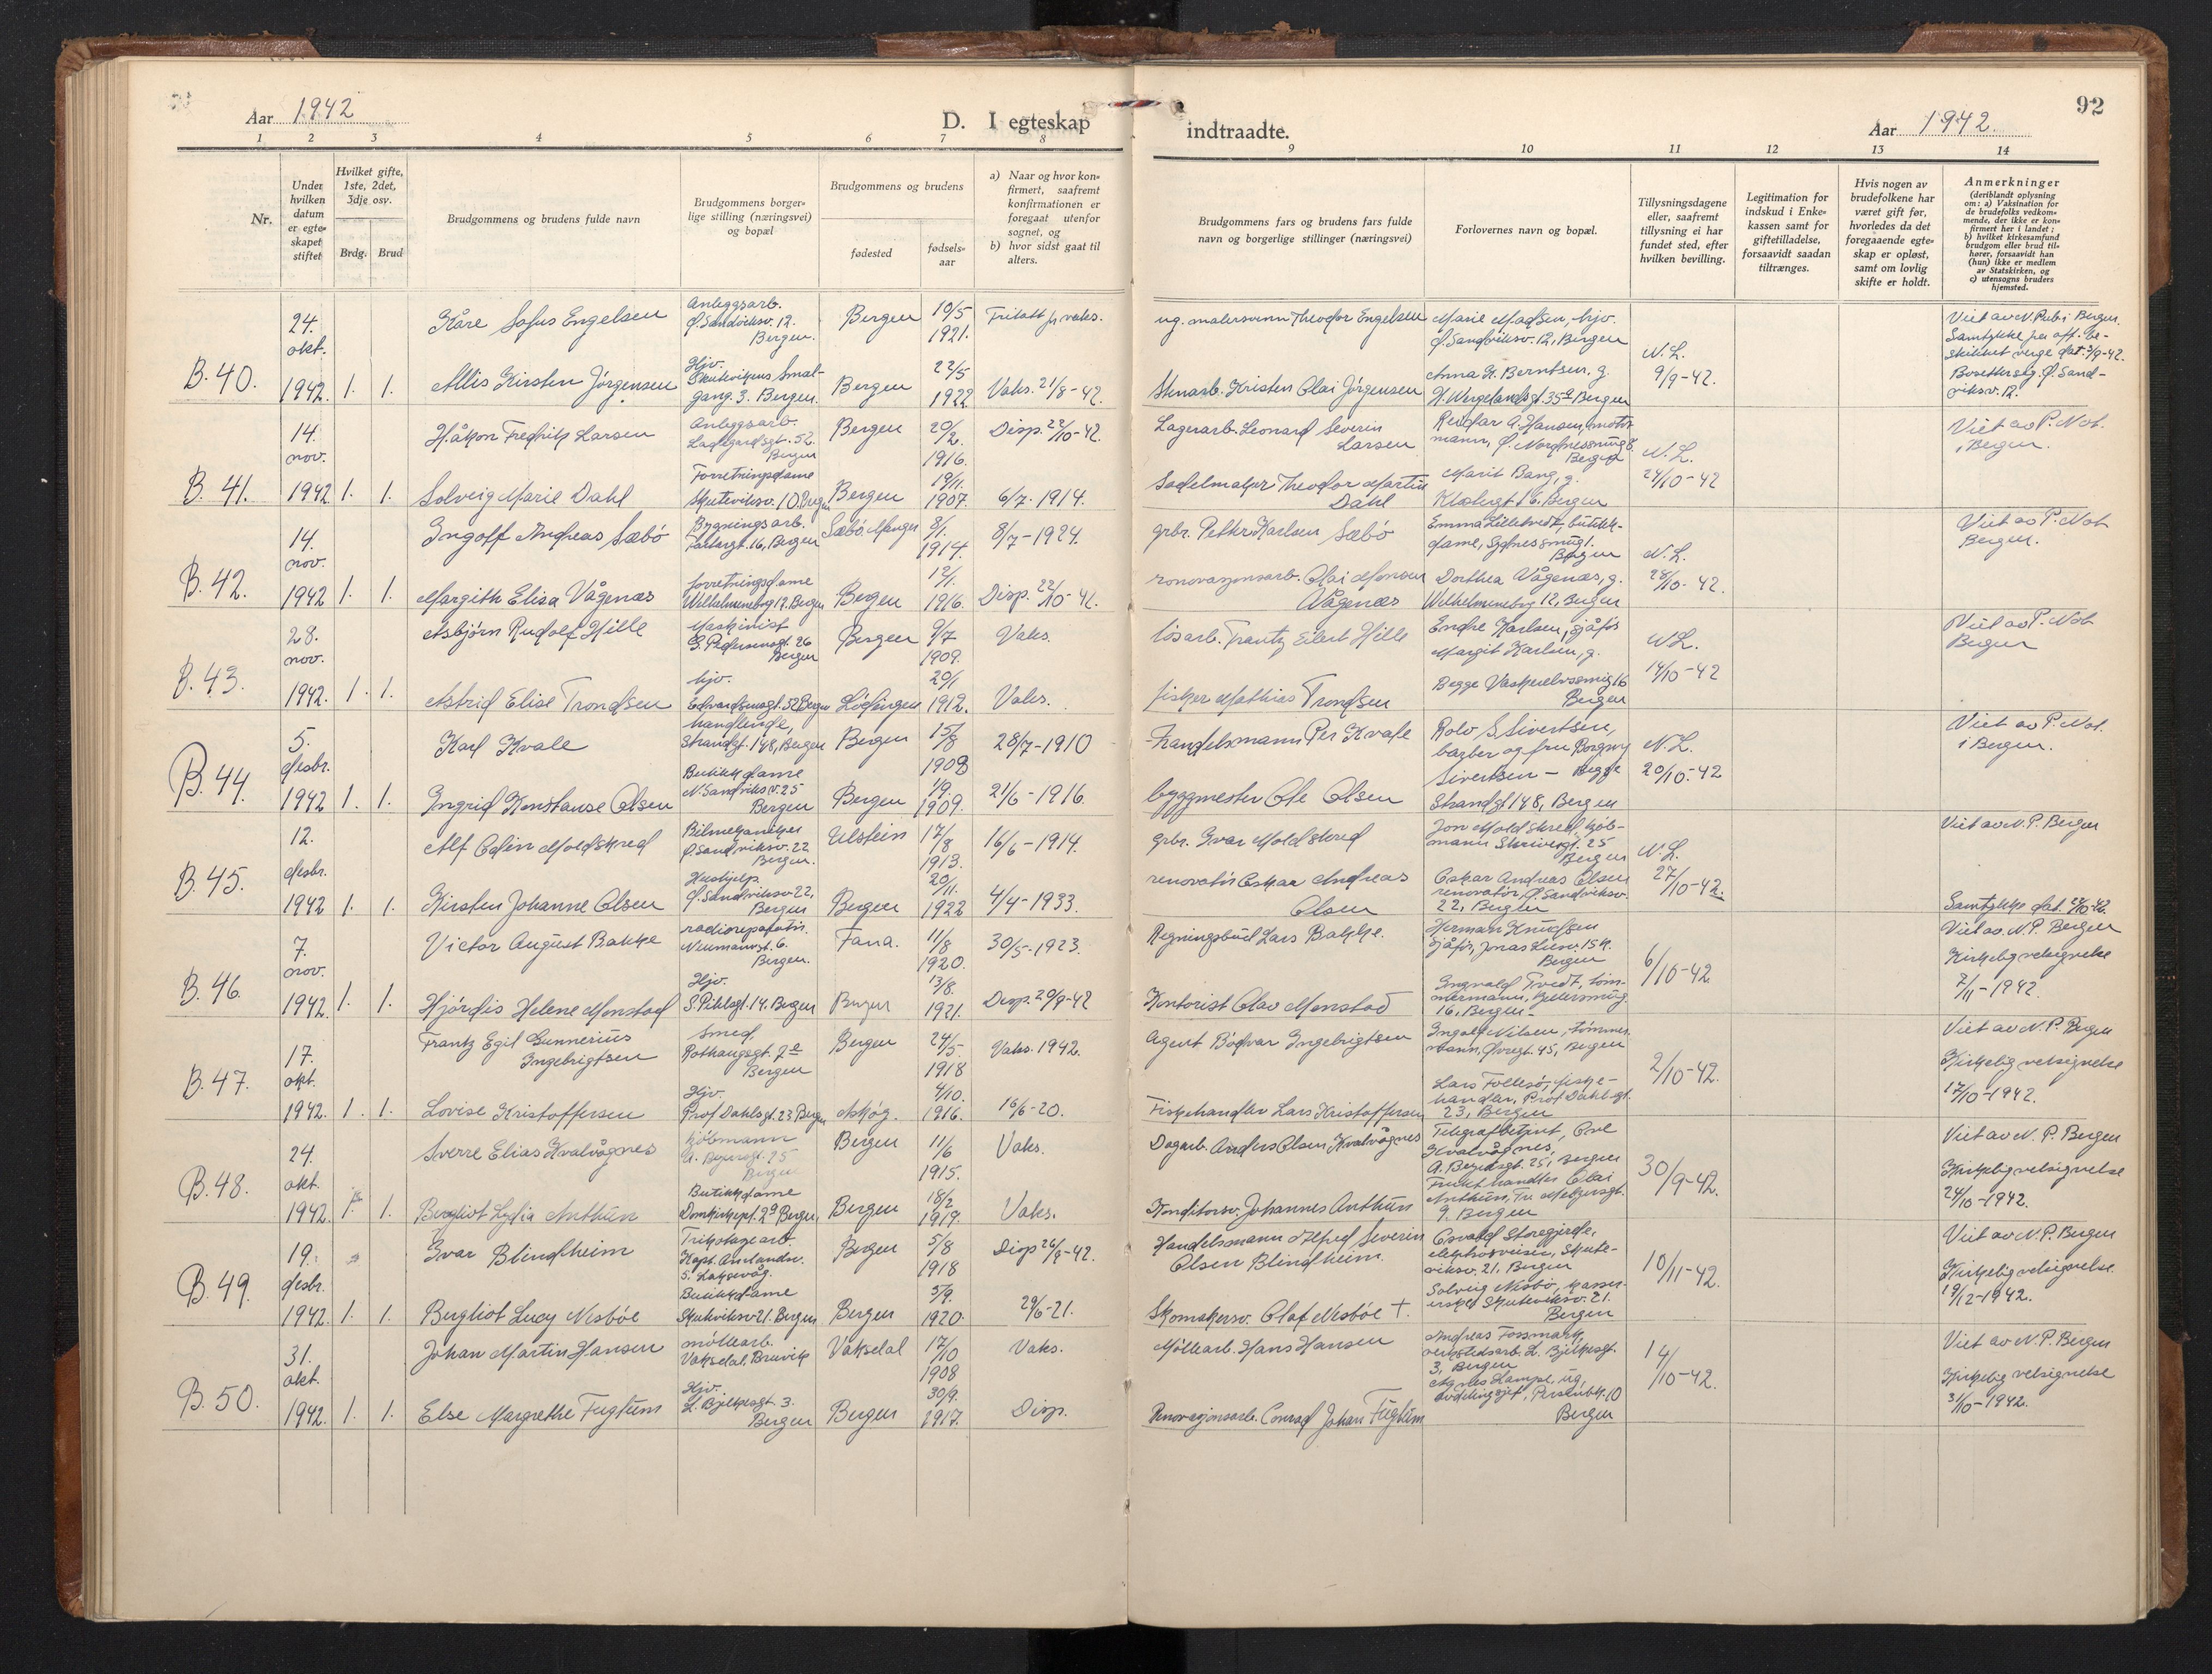 Aar 1942
D. I egteskap
indtraadte.
Aar 1942.
92
1 2 3 4 5 6 7 8 9 10 11 12 13 14
Nr.
Under hvilken datum er egteskapet stiftet
Hvilket gifte, 1ste, 2det, 3dje osv.
Brdg. Brud
Brudgommens og brudens fulde navn
Brudgommens borgerlige stilling (næringsvei) og bopæl
Brudgommens og brudens
fødested
fødselsaar
a) Naar og hvor konfirmert, saafremt konfirmationen er foregaat utenfor sognet, og
b) hvor sidst gaat til alters.
Brudgommens fars og brudens fars fulde navn og borgerlige stillinger (næringsvei)
Forlovernes navn og bopæl.
Tillysningsdagene eller, saafremt tillysning ei har fundet sted, efter hvilken bevilling.
Legitimation for indskud i Enkekassen samt for giftetilladelse, forsaavidt saadan tiltrænges.
Hvis nogen av brudefolkene har været gift før, hvorledes da det foregaaende egteskap er opløst, samt om lovlig skifte er holdt.
Anmerkninger
(deriblandt oplysning om: a) Vaksination for de brudefolks vedkommende, der ikke er konfirmert her i landet; b) hvilket kirkesamfund brudgom eller brud tilhører, forsaavidt han (hun) ikke er medlem av Statskirken, og c) utensogns bruders hjemsted.
B. 40.
24. okt. 1942. 1. 1.
Kåre Sofus Engelsen
Anleggsarb. Ø. Sandviksv. 12. Bergen.
Bergen 10/5 1921.
Fritatt fr vaks.
ug. malersvenn Theodor Engelsen
Marie Madsen, hjv. Ø. Sandviksv. 12, Bergen
N.L. 9/9-42.
Viet av N. Pub i Bergen. Samtykke fra off. beskikket verge dat. 3/9-42. Bosetter sig Ø. Sandviksv. 12.
Allis Kirsten Jørgensen
Hjv. Skutevikens Smalgang 3. Bergen.
Bergen 22/5 1922
Vaks. 21/8-42.
Stenarb. Kristen Olai Jørgensen
Anna K. Berntsen, g. H. Wergelandsgt. 35a Bergen
B. 41.
14. nov. 1942 1. 1.
Håkon Fredrik Larsen
Anleggsarb. Ladegårdsgt. 52. Bergen
Bergen 20/2. 1916.
Disp. 22/10-42.
Lagerarb. Leonard Severin Larsen
Reidar A. Hansen, Bergen
N.L. 24/10-42
Viet av P. Not. i Bergen.
Solveig Marie Dahl
Forretningsdame Skuteviksv. 10. Bergen
Bergen 19/11. 1907.
6/7. 1914.
Sadelmaker Theodor Martin Dahl
Marit Bang, g. Klostergt 16. Bergen
B. 42.
14. nov. 1942 1. 1.
Ingolf Andreas Sæbö
Bygningsarb. Bergen
Sæbö. Manger 8/1. 1914.
8/7-1924.
grbr. Petter Karlsen Sæbö
Emma Lilletvedt, butikkdame, Sydnessmug 1. Bergen
N.L. 28/10-42.
Viet av P. Not Bergen.
Margith Elisa Vågenæs
forretningsdame Wilhelmineborg 12. Bergen
Bergen 12/1. 1916.
Disp. 22/10-42.
renovasjonsarb. Olai Monsen Vågenæs
Dorthea Vågenæs, g. Wilhelmineborg 12, Bergen
B. 43.
28. nov. 1942. 1. 1.
Asbjörn Rudolf Hille
Maskinist G. Pedersensgt. 26 Bergen
Bergen 9/7 1909.
Vaks.
løsarb. Frantz Eilert Hille
Endre Karlsen, sjåfør Margit Karlsen, g. Begge Vaskerelvssmug 16 Bergen
N.L. 14/10-42
Viet av P. Not Bergen
Astrid Elise Trondsen
hjv. Edvardsensgt. 52 Bergen
Lödingen 20/1 1912.
Vaks.
fisker Mathias Trondsen
B. 44.
5. desbr. 1942 1. 1.
Karl Kvale
handlende, Strandgt. 148, Bergen
Bergen 15/8 1908
28/7-1910
Handelsmann Per Kvale
Rolv S. Sivertsen, barber og fru Borgny Sivertsen - Begge Strandgt 148, Bergen
N.L. 20/10.-42
Viet av P. Not. i Bergen.
Ingrid Konstanse Olsen
Butikkdame N. Sandviksv. 25 Bergen
Bergen 1/9. 1909.
21/6-1916.
byggmester Ole Olsen
B. 45.
12. desbr. 1942 1. 1.
Alf Odin Moldskred
Bilmekaniker Ø. Sandviksv. 22 Bergen.
Ulstein 17/8 1913.
16/6-1914.
grbr. Ivar Moldskred
Jon Moldskred, kjöbmann Skivergt. 25 Bergen
N.L. 27/10-42.
Viet av N.P. Bergen
Kirsten Johanne Olsen
Hushjelp. Ø. Sandviksv. 22, Bergen
Bergen 20/11. 1922
4/4-1933.
renovatör Oskar Andreas Olsen
Oskar Andreas Olsen renovatör, Ø. Sandviksv. 22, Bergen
Samtykke dat. 27/10-42.
B. 46.
7. nov. 1942 1. 1.
Victor August Bakke
radioreparatör. Neumannsgt. 6. Bergen.
Fana. 11/8 1920.
30/5-1923.
Regningsbud Lars Bakke.
Herman Knudsen Sjåför, Jonas Liesv. Bergen
6/10-42
Viet av N.P. Bergen Kirkelig velsignelse 7/11-1942.
Hjördis Helene Monstad
Hjv. S. Pihlsgt. 14. Bergen
Bergen 13/8. 1921.
Disp. 29/9-42
Kontorist Olav Monstad
Ingvald Tvedt, tömmermann, 16, Bergen.
B. 47.
17. okt. 1942. 1. 1.
Frantz Egil Gunnerius Ingebrigtsen
Smed, Rothaugsgt. 7a Bergen
Bergen 24/5. 1918
Vaks. 1942.
Agent Bödvar Ingebrigtsen
Ingolf Nilsen, tömmermann, Øvregt. 45, Bergen
2/10-42.
Viet av N.P. Bergen Kirkelig velsignelse 17/10-1942.
Lovise Kristoffersen
Hjv. Prof Dahlsgt. 23 Bergen
Askøy. 4/10. 1916.
16/6-20.
Fiskehandler Lars Kristoffersen
Lars Follesö, fiskehandler, Prof Dahlsgt. 23, Bergen
B. 48.
24. okt 1942. 1. 1.
Sverre Elias Kvalvågnes
kjöbmann A. Beyersgt. 25 Bergen
Bergen 11/6 1915.
Vaks.
Dagarb. Anders Olsen Kvalvågnes
Telegrafbetjent, Kvalvågnes, A. Beyersgt. 25, Bergen
30/9-42.
Viet av N.P. Bergen Kirkelig velsignelse 24/10-1942.
Bergliot Lydia Anthun
Butikkdame Domkirkepl. 2a Bergen,
Bergen 18/2 1919.
Vaks.
Konditorsv. Johannes Anthun
Frukthandler Olai Anthun, 9. Bergen
B. 49.
19. desbr. 1942. 1. 1.
Ivar Blindheim
Trikotagearb. Kapt. Amlandsv. 5. Laksevåg.
Bergen 5/8 1918
Disp 26/8-42.
Handelsmann Alfred Severin Olsen Blindheim.
Osvald Storegjerde, Skuteviksv. 21, Bergen
10/11-42.
Viet av N.P. Bergen Kirkelig velsignelse. 19/12-1942.
Bergliot Lucy Nesböe
Butikkdame Skuteviksv 21. Bergen
Bergen 5/9. 1920.
29/6-21.
Skomakersv. Olaf Nesböe †.
Solveig Nesbö, kassererske Skuteviksv. 21. Bergen
B. 50.
31. okt. 1942. 1. 1.
Johan Martin Hansen
möllearb. Vaksdal, Bruvik
Vaksdal 17/10 1908
Vaks.
Möllearb. Hans Hansen
Andreas Fossmark, verkstedsarb. L. Bjelkesgt. 3, Bergen
14/10-42.
Viet av N.P. Bergen Kirkelig velsignelse 31/10-1942.
Else Margrethe Fuglum
Hjv. L. Bjelkesgt. 3. Bergen
Bergen 30/9. 1917.
Disp.
Renovasjonsarb. Conrad Johan Fuglum
Agnes Lampe, ug, 10 Bergen